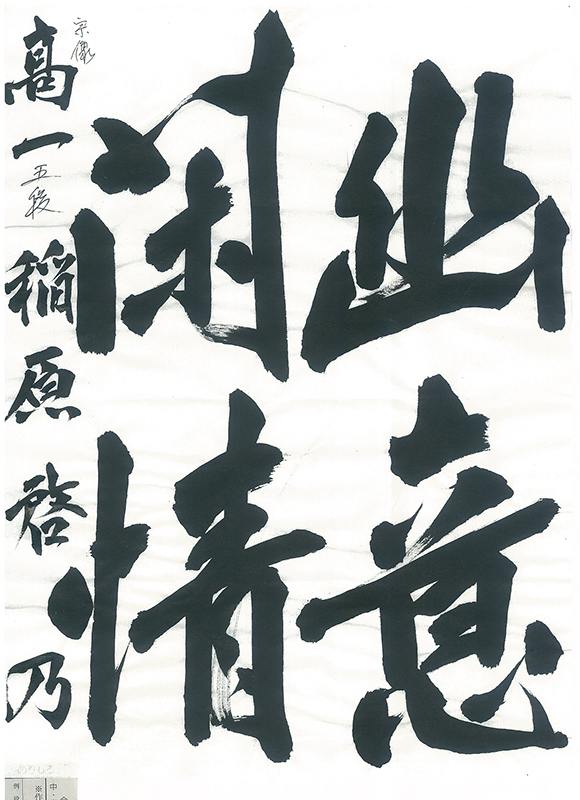 幽意
閑情
宗像
高一 五段 稲原啓乃